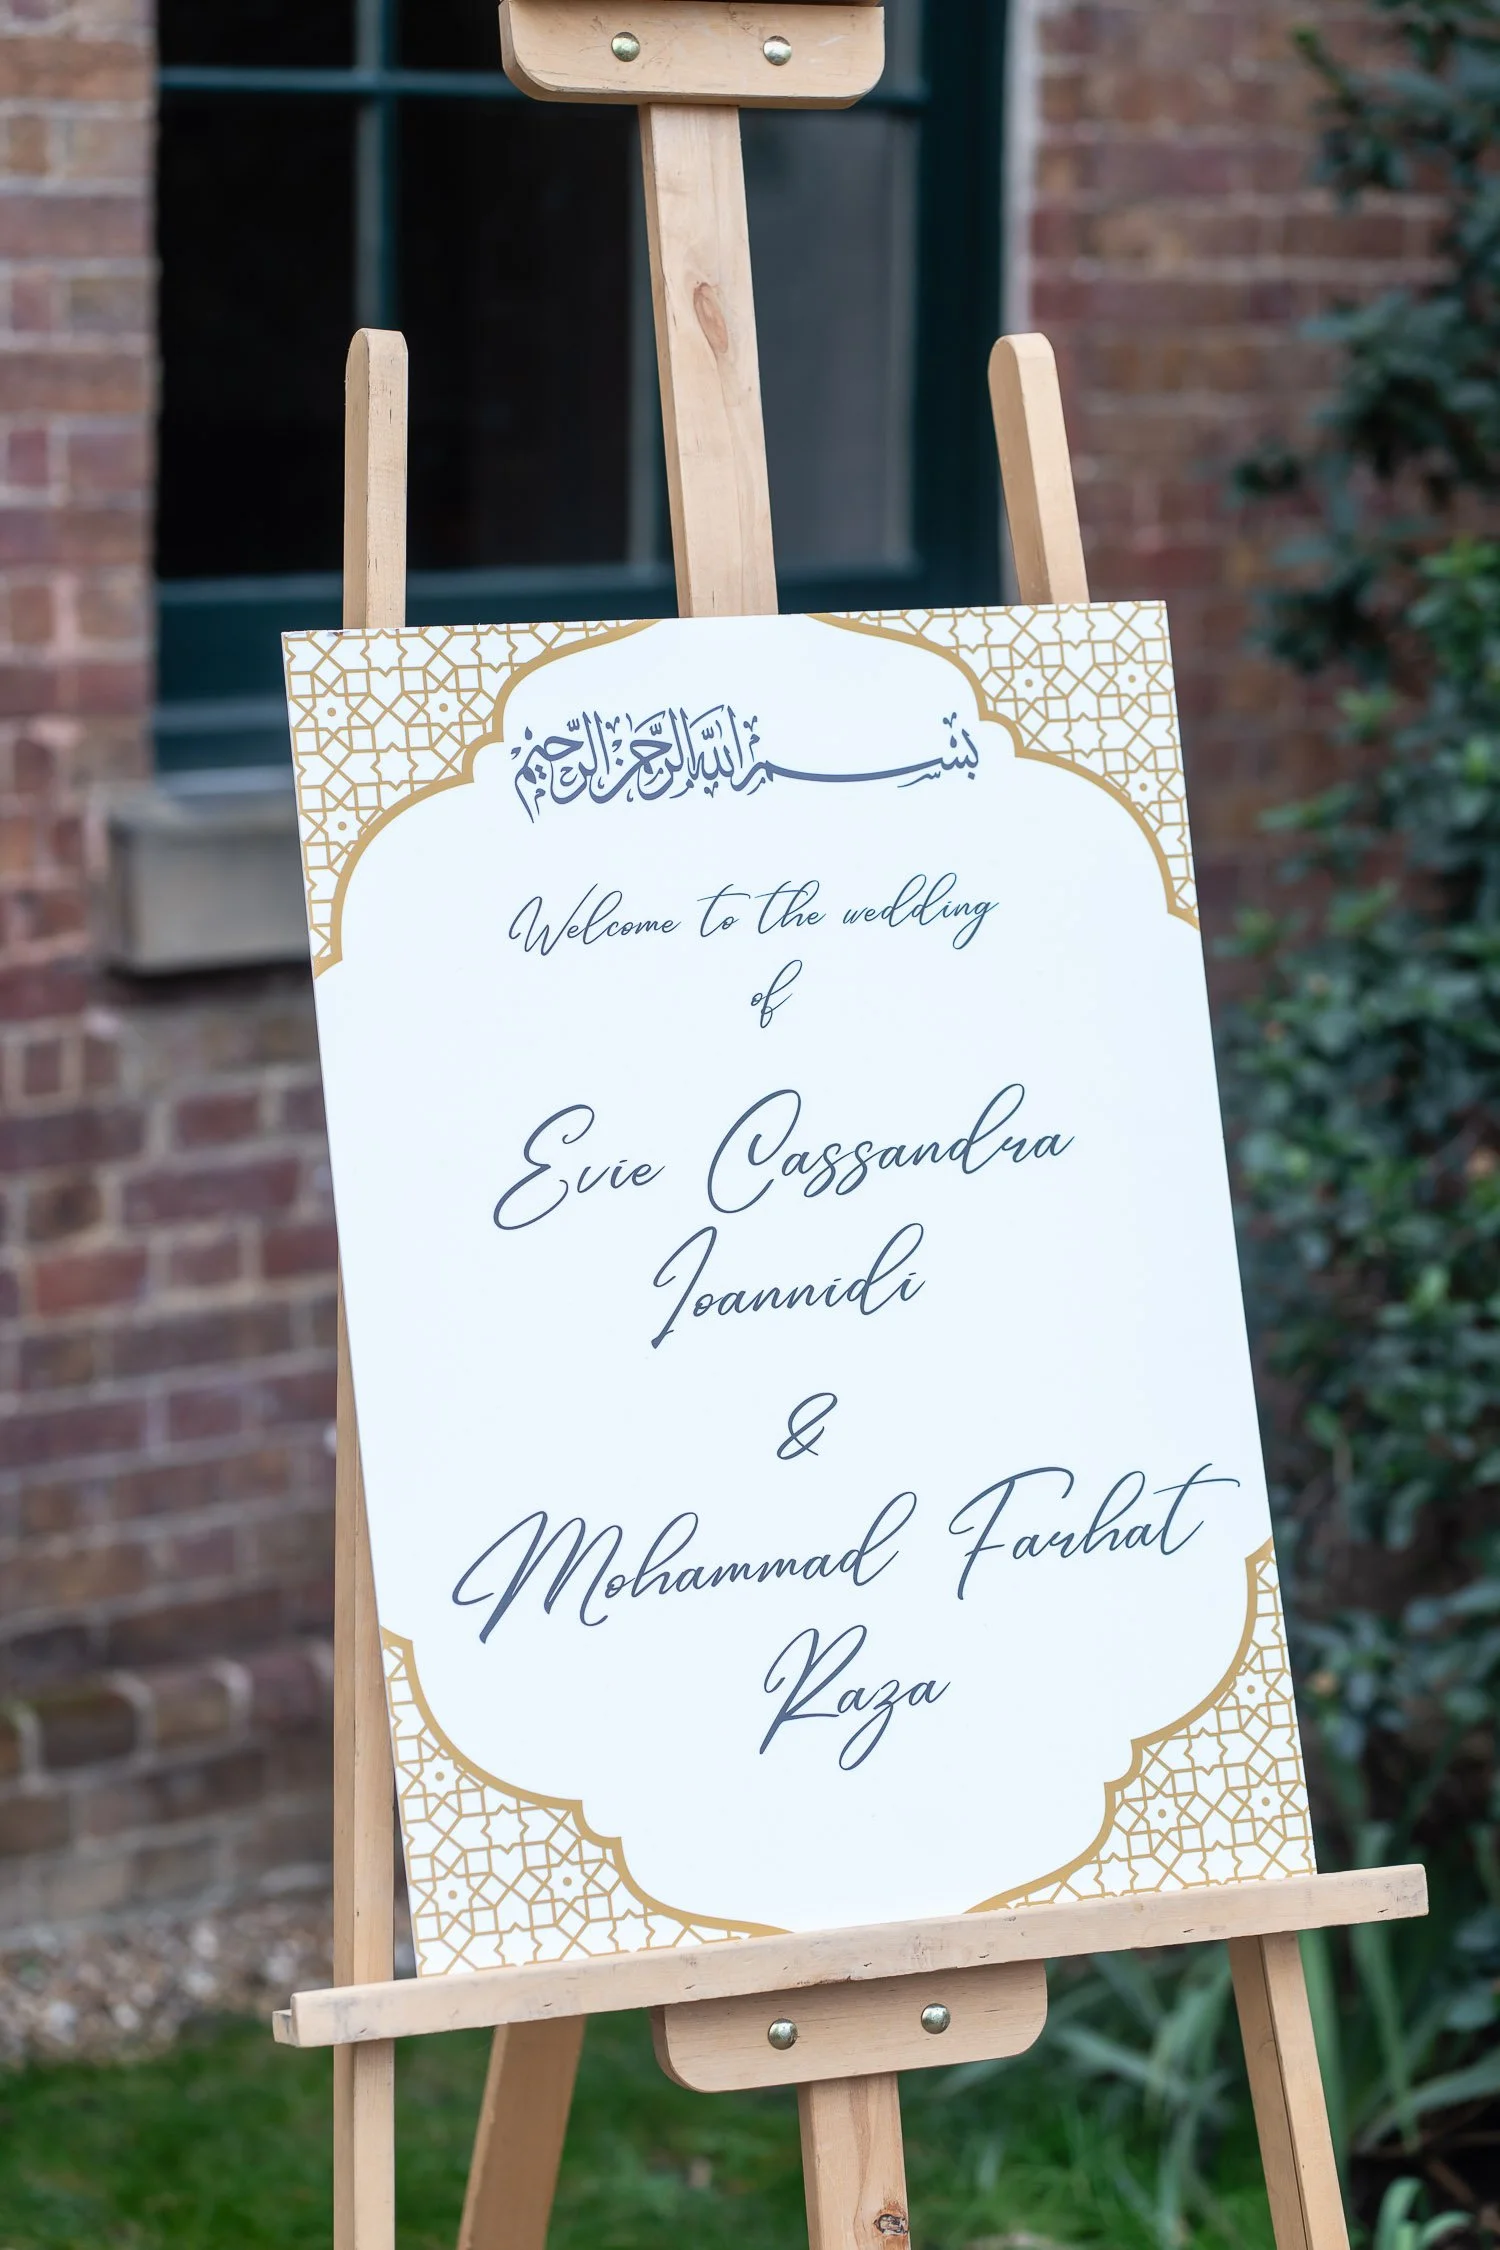 بسم الله الرحمن الرحيم
Welcome to the wedding
of
Evie Cassandra
Ioannidi
&
Mohammad Farhat
Raza